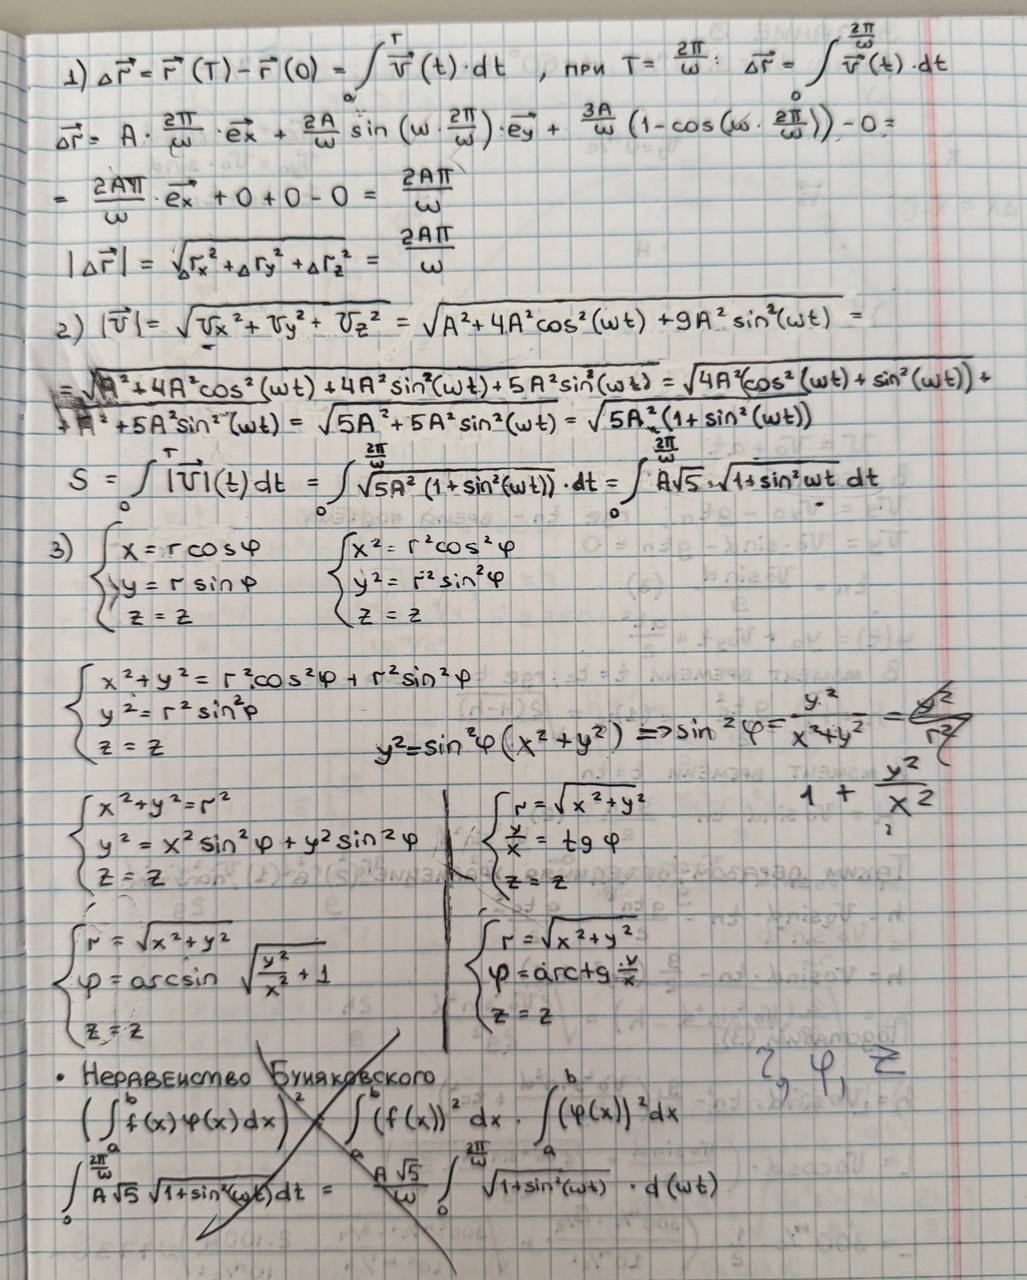 1) Δr⃗ = r⃗(T) − r⃗(0) = ∫₀ᵀ v⃗(t)·dt , при T = 2π/ω : Δr⃗ = ∫₀^(2π/ω) v⃗(t)·dt
Δr⃗ = A · 2π/ω · e⃗x + 2A/ω sin(ω · 2π/ω) · e⃗y + 3A/ω (1−cos(ω · 2π/ω)) − 0 =
= 2Aπ/ω · e⃗x + 0 + 0 − 0 = 2Aπ/ω
|Δr⃗| = √(Δrx² + Δry² + Δrz²) = 2Aπ/ω
2) |v⃗| = √(vx² + vy² + vz²) = √(A² + 4A²cos²(ωt) + 9A² sin²(ωt)) =
= √(A² + 4A²cos²(ωt) + 4A²sin²(ωt) + 5A²sin²(ωt)) = √(4A²(cos²(ωt) + sin²(ωt)) +
+ A² + 5A²sin²(ωt) = √(5A² + 5A²sin²(ωt)) = √(5A²(1+sin²(ωt))
S = ∫₀ᵀ |v⃗|(t) dt = ∫₀^(2π/ω) √(5A²(1+sin²(ωt))) · dt = ∫₀^(2π/ω) A√5 · √(1+sin²ωt) dt
3) { x = r cosφ { x² = r²cos²φ
y = r sinφ y² = r²sin²φ
z = z z = z
{ x² + y² = r²cos²φ + r²sin²φ
y² = r²sin²φ
z = z
y² = sin²φ(x² + y²) => sin²φ = y²/(x²+y²) = y²/r²
1 + y²/x²
{ x² + y² = r² { r = √(x² + y²)
y² = x²sin²φ + y²sin²φ y/x = tgφ
z = z z = z
{ r = √(x² + y²) { r = √(x² + y²)
φ = arcsin √(y²/x² + 1) φ = arctg y/x
z = z z = z
r, φ, z
• Неравенство Буняковского
(∫ₐᵇ f(x) φ(x) dx)² ∫ₐᵇ (f(x))² dx · ∫ₐᵇ (φ(x))² dx
∫₀^(2π/ω) A√5 √(1+sin²(ωt)) dt = A√5/ω ∫₀^(2π/ω) √(1+sin²(ωt)) · d(ωt)